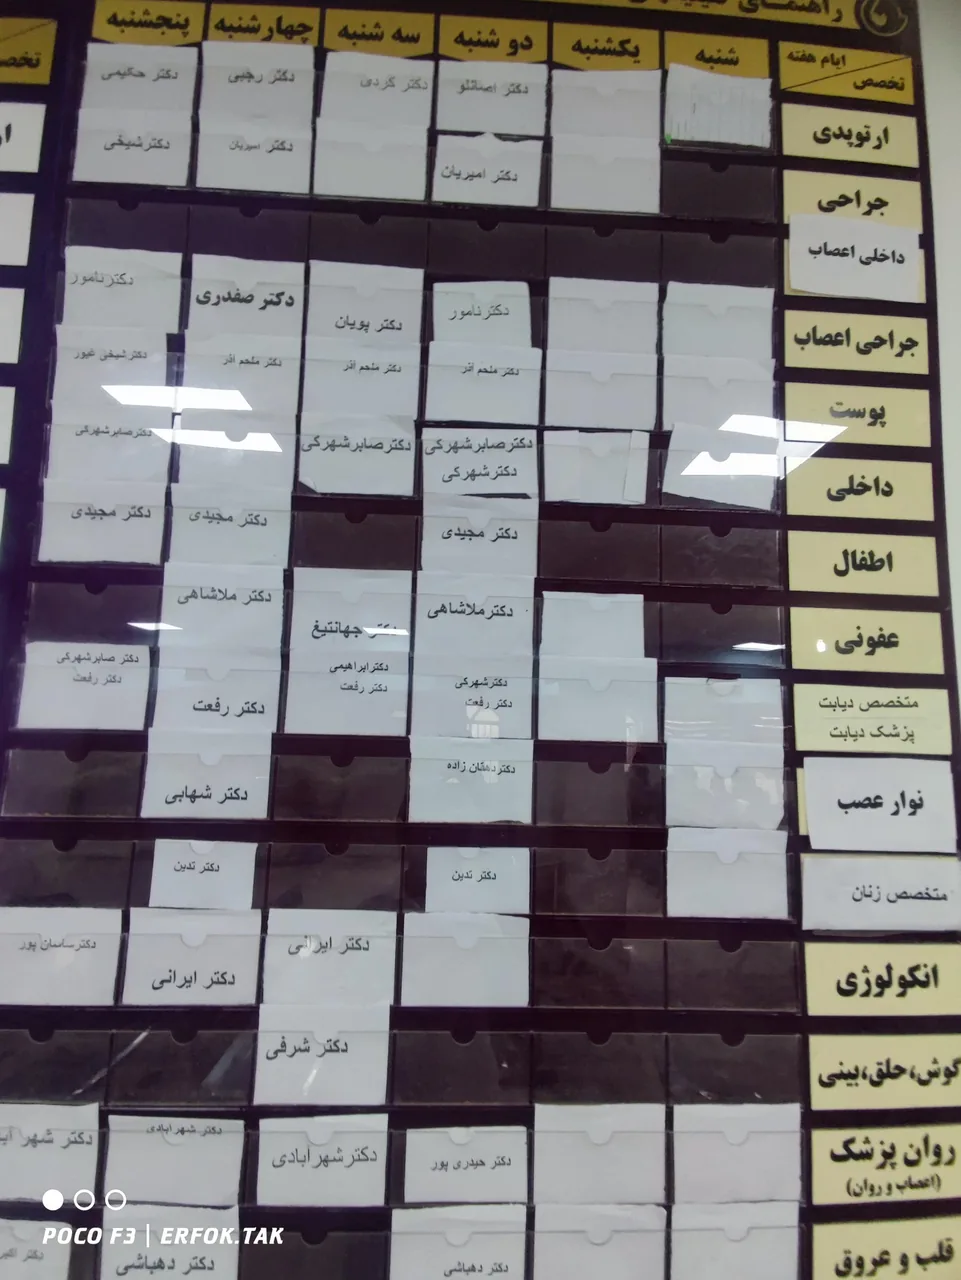 راهنمای
ایام هفته
تخصص
شنبه
یکشنبه
دو شنبه
سه شنبه
چهارشنبه
پنجشنبه
تخصص
ارتوپدی
دکتر اصانلو
دکتر کردی
دکتر رجبی
دکتر حکیمی
جراحی
دکتر امیریان
دکتر امیریان
دکترشیخی
داخلی اعصاب
جراحی اعصاب
دکترنامور
دکتر پویان
دکتر صفدری
دکترنامور
پوست
دکتر ملحم آذر
دکتر ملحم آذر
دکتر ملحم آذر
دکتر شیخی غیور
داخلی
دکترصابرشهرکی
دکترشهرکی
دکترصابرشهرکی
دکترصابرشهرکی
اطفال
دکتر مجیدی
دکتر مجیدی
دکتر مجیدی
عفونی
دکترملاشاهی
دکتر جهانتیغ
دکتر ملاشاهی
متخصص دیابت
پزشک دیابت
دکترشهرکی
دکتر رفعت
دکترابراهیمی
دکتر رفعت
دکتر رفعت
دکتر صابرشهرکی
دکتر رفعت
نوار عصب
دکتردهقان زاده
دکتر شهابی
متخصص زنان
دکتر تدین
دکتر تدین
انکولوژی
دکتر ایرانی
دکتر ایرانی
دکترساسان پور
گوش،حلق،بینی
دکتر شرفی
روان پزشک
(اعصاب و روان)
دکتر حیدری پور
دکترشهرآبادی
دکتر شهرآبادی
دکتر شهر
قلب و عروق
دکتر دهباشی
دکتر دهباشی
دکتر
POCO F3 | ERFOK.TAK